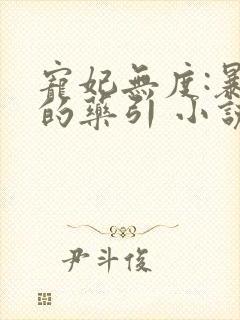 寵妃無度:暴
的藥引 小說
尹斗俊